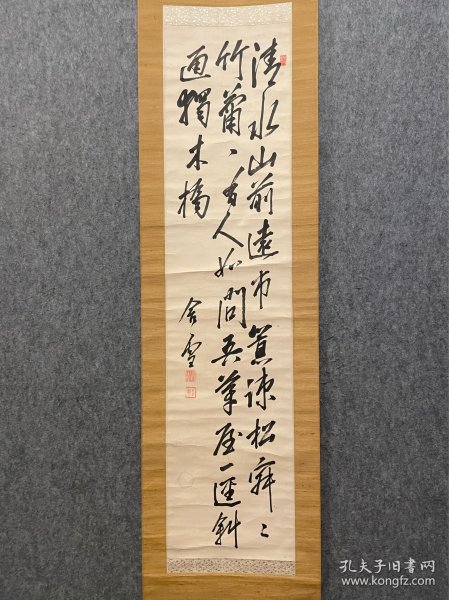 清水山前遠市囂疎松寂々
竹蕭々有人如問吾茅屋一逕斜
通獨木橋
含雪
孔夫子旧书网
www.kongfz.com